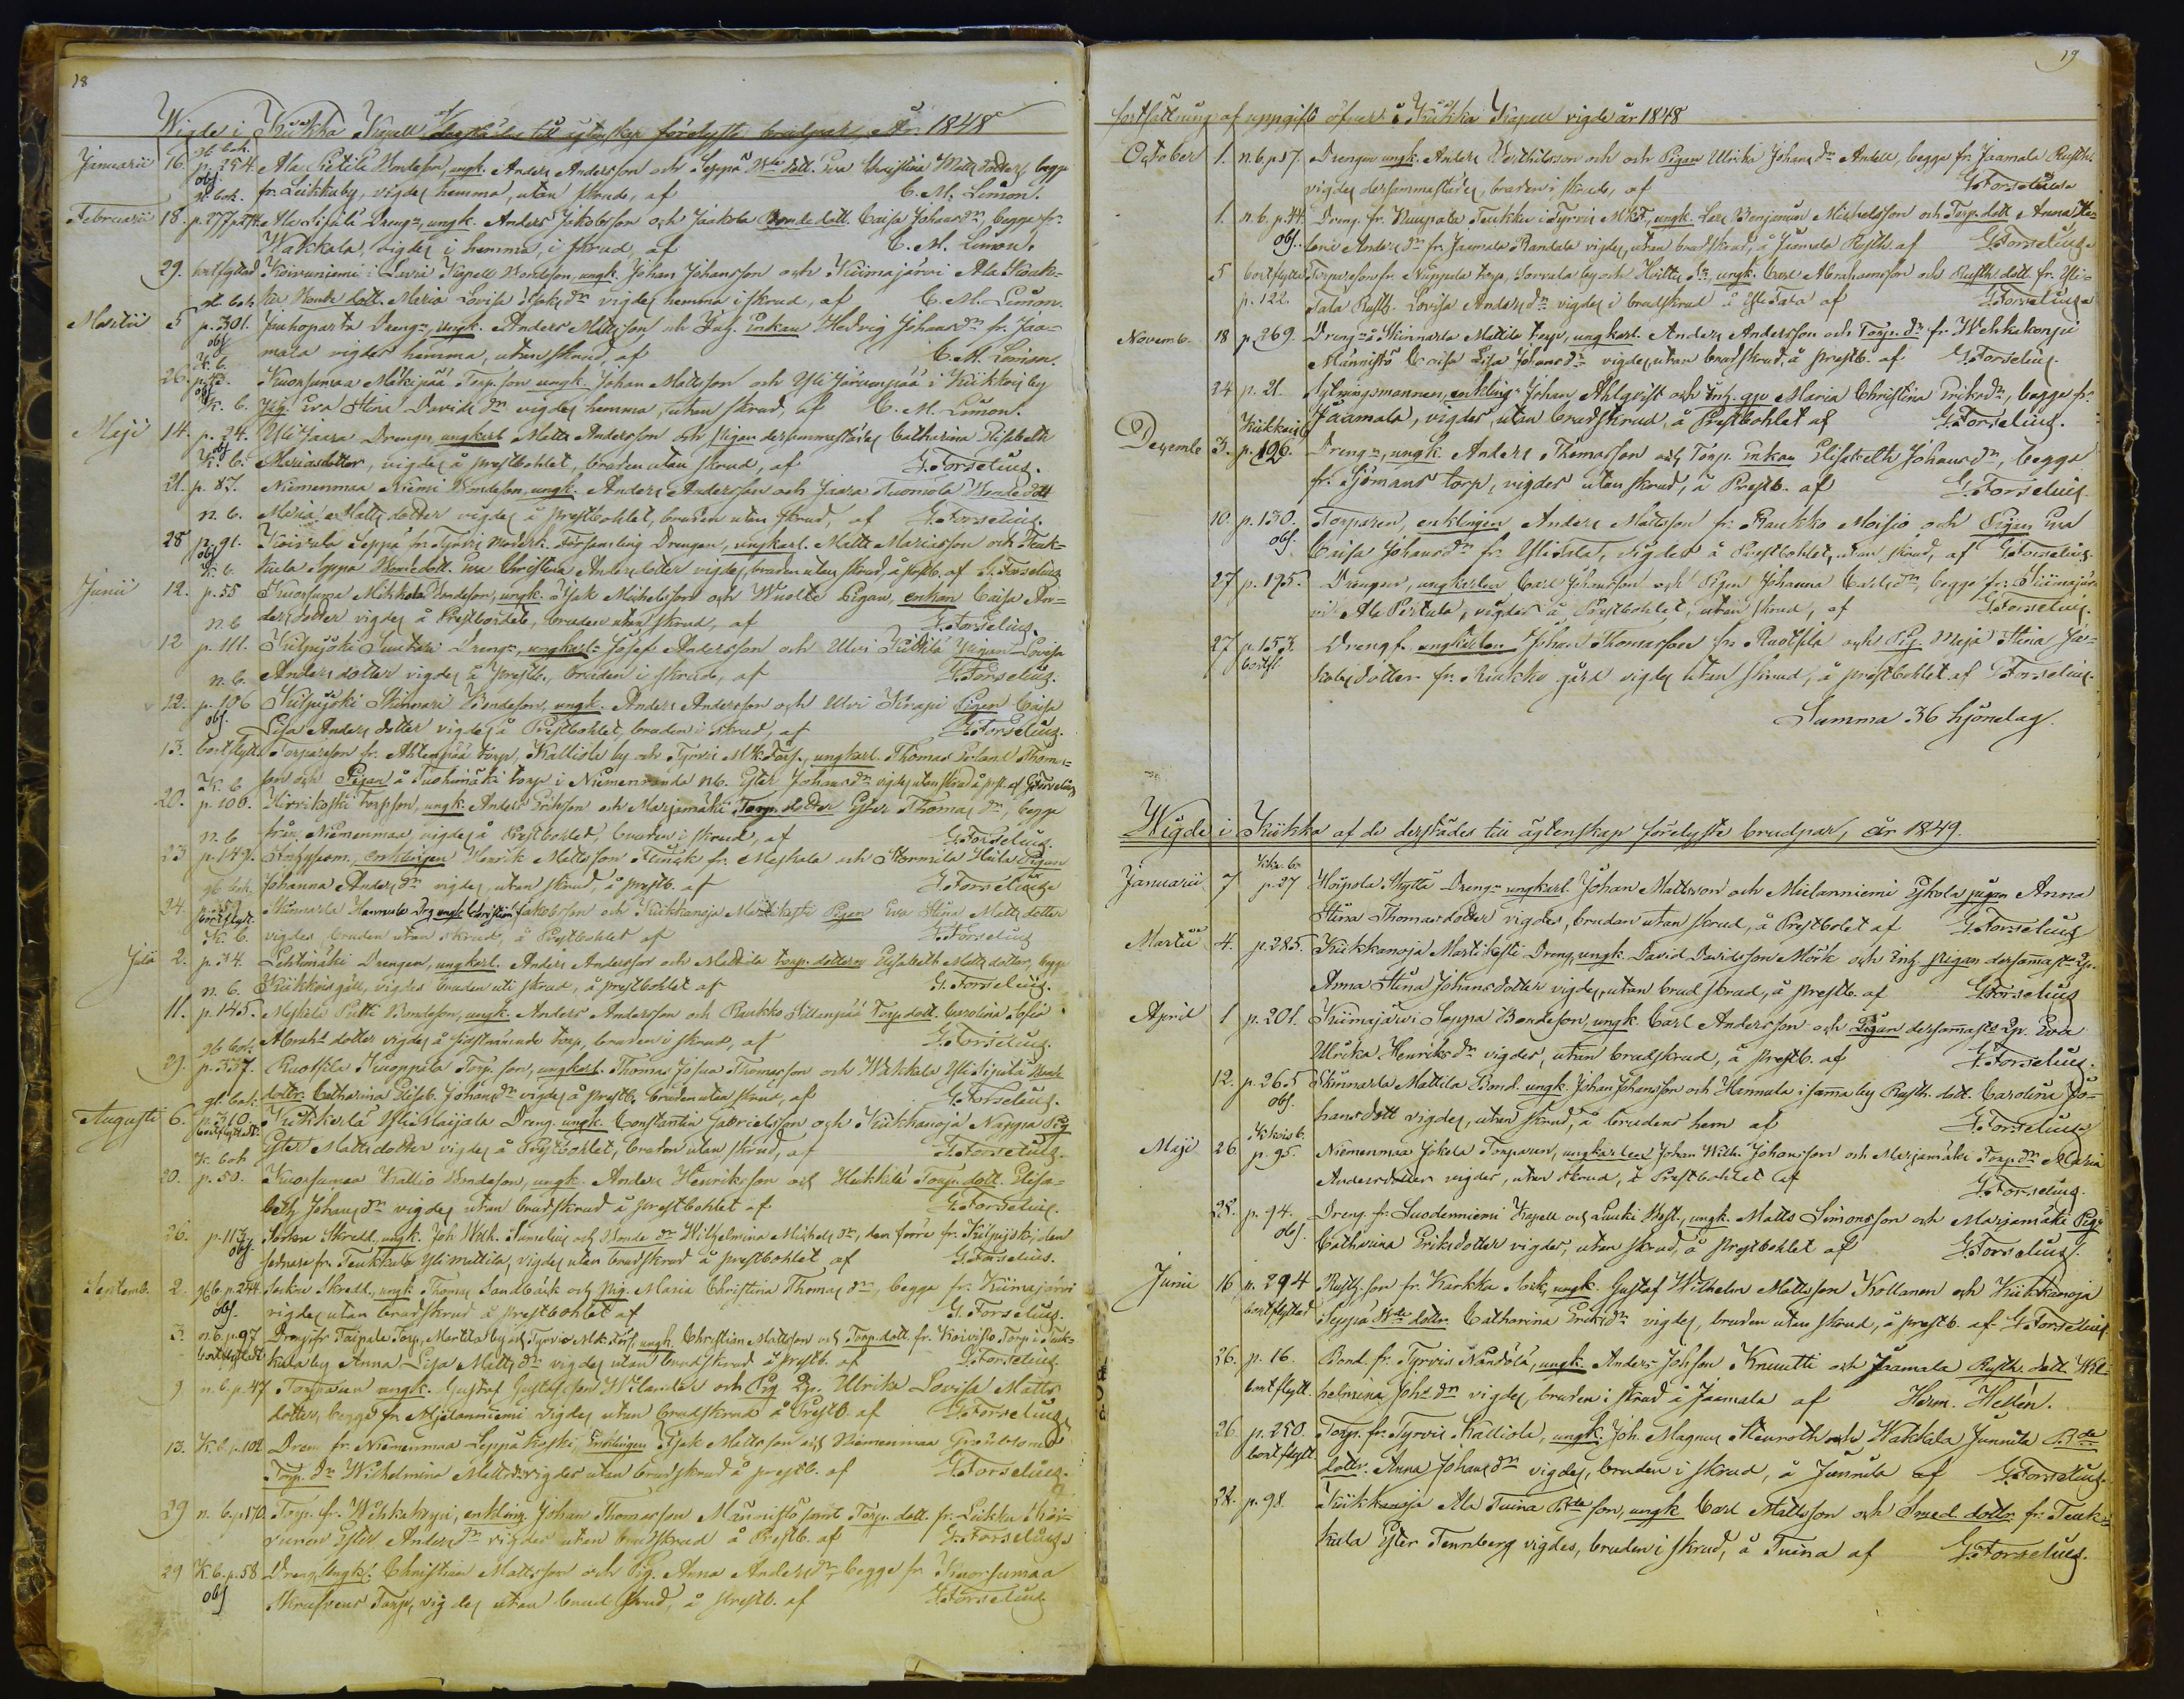 18
Wigde i Kiikka Kapell af derstädes till äktenskap förelyste brudpar, År 1848
Januarii 16. gl. bok. p. 254. obs. Ala Pietilä Bondeson, ungk. Anders Andersson och Seppä Bde dott. Eva Christina Matts dotter, begge
fr. Leikkuby, vigdes hemma, utan skrud, af C. M. Limon.
Februarii 18. p. 277, 274. Ala Sipilä Dreng, ungk. Anders Jakobsson och Jaakola Bonde dott. Caisa Johansdr, begge fr.
Wakkala, vigdes i hemma, i skrud, af C. M. Limon.
29. bortflyttad Koivuniemi i Lavia Kapell Bondeson, ungk. Johan Johansson och Kiimajärvi Ala Kouk-
ku Bonde dott. Maria Lovisa Isaks dr vigdes hemma i skrud, af C. M. Limon.
Martii 5 gl. bok. p. 301. obs Juhoparta Dreng, ungk. Anders Mattsson och Inh. Enkan Hedvig Johans dr fr. Jaa-
mala vigdes hemma, utan skrud, af C. M. Limon.
26. K. b. p. 43. obs Kuorsumaa Mäkipää Torp. son ungk. Johan Mattsson och Yli Järvenpää i Kiikkois by
Pig. Eva Stina Davids dr vigdes hemma, utan skrud, af C. M. Limon.
Maji 14. K. b. p. 24. obs Yli Jaara Drengen, ungkarl Matts Andersson och Pigan dersammastädes Catharina Elisabeth
Mariasdotter, vigdes å prestbohlet, bruden utan skrud, af G. Forselius.
21. K. b. p. 87. Niemenmaa Niemi Bondeson, ungk. Anders Andersson och Jaara Tuomola Bonde dott
Maria Matts dotter vigdes å prestbohlet, bruden utan skrud, af G. Forselius.
28 n. b. p. 91. obs Koivula Seppä fr. Tyrvis moderk. församling Drengen, ungkarl. Matts Mariasson och Teuk-
kula Seppä Bonde dott. Eva Christina Anders dotter vigdes, bruden utan skrud, å prestb. af G. Forselius
Junii 12. K. b. p. 55 Kuorsumaa Mikkola Bondeson, ungk. Isak Michelsson och Wuolte Pigan, enkan Caisa An-
ders dotter vigdes å Prestbordet, bruden utan skrud, af G. Forselius.
12 n. b. p. 111. Kilpijoki Suutari Dreng, ungkarl. Josef Andersson och Ulvi Kulkkilä Pigan Lovisa
Anders dotter vigdes å prestb., bruden i skrud, af G. Forselius.
12. n. b. p. 106 obs. Kilpijoki Skinnari Bondeson, ungk. Anders Andersson och Ulvi Knapi Pigan Caisa
Lisa Anders dotter vigdes å Prestbohlet, bruden i skrud, af G. Forselius.
13. bortflytt Torpareson fr. Ahlenpää torp, Kalliola by och Tyrvis M.K. Förs., ungkarl. Thomas Erland Thoms-
son och Pigan å Tuohimäki torp i Niemenranda n.b. Ester Johans dr vigdes utan skrud å prst. af G. Forselius
20. K. b p. 100. Hirrikoski torpson, ungk. Anders Eriksson och Marjamäki Torp. dotter Ester Thomas dr, begge
från Niemenmaa, vigdes å Prestbohlet, bruden i skrud, af G. Forselius.
23 n. b p. 149. Inhysesm., enklingen Henrik Mattsson Flinck fr. Meskala och Stormila Huila Pigan
Johanna Anders dr vigdes, utan skrud, å prestb. af G. Forselius
24. gl. bok. p. 259 bortflytt. Skinnarla Hannula Drg ungk. Christian Jakobsson och Kiikkanoja Martikesti Pigan Eva Stina Matts dotter
vigdes bruden utan skrud, å Prestbohlet af G. Forselius
Julii 2. K. b. p. 34. Lehtimäki Drengen, ungkarl. Anders Andersson och Mattila torp. dottern Elisabeth Matts dotter, begge
Kiikkois gäll, vigdes bruden uti skrud, å prestbohlet af G. Forselius.
11. n. b. p. 145. Meskala Pietti Bondeson, ungk. Anders Andersson och Raukko Sillanpää Torp. dott. Carolina Sofia
Abrah:s dotter vigdes å sidstnämnde torp, bruden i skrud, af G. Forselius.
29. gl. bok. p. 337. Ruotsila Knaappila Torp. son, ungkarl. Thomas Josua Thomasson och Wakkala Yli Sipilä Bond
dotter. Catharina Elisab. Johans dr vigdes å prestb. bruden utan skrud, af G. Forselius.
Augusti 6. gl. bok. p. 310. bortflyttat. Kiikkerlä Yli Maijala Dreng. ungk. Constantin Gabrielsson och Kiikkanoja Nappa Pig
Ester Matts dotter vigdes å Prestbohlet, bruden utan skrud, af G. Forselius.
20. K. bok p. 50. Kuorsumaa Kallio Bondeson, ungk. Anders Henriksson och Heikkilä Torp. dott. Elisa-
beth Johans dr vigdes utan brudskrud å prestbohlet af G. Forselius.
26. p. 113 obs. Sockne Skredd., ungk. Joh. Wilh. Numelius och Bonde dr Wilhelmina Michels dr, den förre fr. Kilpijoki, den
sednare fr. Teukkula Yli Mattila, vigdes utan brudskrud å prestbohlet af G. Forselius.
Septemb. 2. gl. b. p. 244 obs. Sockne Skredd., ungk. Thomas Sandbäck och Pig. Maria Christina Thomas dr, begge fr. Kiimajärvi
vigdes utan brudskrud å prestbohlet af G. Forselius.
3. n. b. p. 97 bortflyttat Dreng fr. Taipale Torp, Marttila by och Tyrvis M.K. Förs., ungk. Christian Mattsson och Torp. dott. fr. Koivisto Torp i Teuk-
kula by Anna Lisa Matts dr vigdes utan brudskrud å prestb. af G. Forselius.
9 n. b. p. 47 Torparen ungk. Gustaf Gustafsson Wilander och Pig Qp. Ulrika Lovisa Matts
dotter, begge fr. Meilanniemi vigdes utan brudskrud å Prestb. af G. Forselius
13. K. b. p. 102 Dreng fr. Niemenmaa Leppäkoski, Enklingen Isak Mattsson och Niemenmaa
Torp. dr Wilhelmina Matts dr vigdes utan brudskrud å prestb. af G. Forselius.
29 n. b. p. 170. Torp. fr. Wehkakorpi, enkling. Johan Thomasson Männistö samt Torp. dott. fr. Liekku
Ester Anders dr vigdes utan brudskrud å Prestb. af G. Forselius
29 K. b. p. 58 obs Dreng, Ungk. Christian Mattsson och Pig. Anna Anders dr begge fr. Kuorsumaa
Skrufvens Torp, vigdes utan brud skrud, å prestb. af G. Forselius
19
fortsättning af uppgift öfver i Kiikka Kapell vigde år 1848
October 1. n. b. p. 57. Drengen ungk. Anders Berthilsson och och Pigan Ulrika Johans dr Andell, begge fr. Jaamala Rusth.
vigdes dersammastädes, bruden i skrud, af G. Forselius
1. n. b. p. 44 obs. Dreng. fr. Nuupala Teukku i Tyrvis M.K.F., ungk. Lars Benjamin Michelsson och Torp. dott Anna He-
lena Anders dr fr. Jaamala Rantala vigdes, utan brudskrud, å Jaamala Rusth. af G. Forselius
5 bortflytt p. 122. Torpareson fr. Nuppula torp, Sorvala by och Hvittis Sn, ungk. Carl Abrahamsson och Rusth. dott. fr. Yli-
tala Rusth. Lovisa Anders dr vigdes i brudskrud å Yli Tala af G. Forselius
Novemb. 18 p. 269. Dreng å Skinnarla Mattila torp, ungkarl. Anders Andersson och Torp. dr fr. Wehkakorpi
Männistö Lovisa Lisa Johans dr vigdes utan brudskrud, å prestb. af G. Forselius.
24 p. 21. Sytningsmannen, enkling Johan Ahlqvist och Inh. qv Maria Christina Eriks dr, begge fr.
Jaamala, vigdes utan brudskrud, å Prestbohlet af G. Forselius.
Decemb 3. Kiikkois p. 196. Dreng, ungk. Anders Thomasson och Torp. Enkan Elisabeth Johans dr, begge
fr. Sjömans torp, vigdes utan skrud, å Prestb. af G. Forselius.
10. p. 130. obs. Torparen, enklingen Anders Mattsson fr. Raukko Moisio och Pigan Eva
Caisa Johans dr fr. Ylitala, vigdes å Prestbohlet, utan skrud, af G. Forselius.
27 p. 195. Drengen, ungkarlen Carl Johansson och Pigan Johanna Carls dr, begge fr. Kiimajär-
vi Ala Pertula, vigdes å Prestbohlet, utan skrud, af G. Forselius.
27 p. 153. bortfl Dreng f. ungkarlen Johan Thomasson fr. Ruotsila och Pig. Maja Stina Ja-
kobs dotter fr. Raukko gård vigdes utan skrud, å prestbohlet af G. Forselius.
Summa 36 hjonelag.
Wigde i Kiikka af de derstädes till äktenskap förelyste brudpar, år 1849.
Januarii 7 Kka. b. p. 27 Hoipola Skyttä Dreng ungkarl. Johan Mattsson och Meilanniemi Eskola pigan Anna
Stina Thomasdotter vigdes, bruden utan skrud, å Prestbolet af G. Forselius
Martii 4. p. 285. Kiikkanoja Martikesti Dreng, ungk. David Davidsson Mörk och Inh. pigan dersammast. Qp.
Anna Stina Johansdotter vigdes, utan brudskrud, å prestb. af G. Forselius
April 1 p. 201. Kiimajärvi Seppä Bondeson, ungk. Carl Andersson och Pigan dersammasts Qp. Eva
Ulrika Henriks dr vigdes, utan brudskrud, å prestb. af G. Forselius.
12. p. 265 obs. Skinnarla Mattila Bond. ungk. Johan Johansson och Hannula i samma by Rusth. dott. Carolina Jo-
hansdott vigdes, utan skrud, å brudens hem af G. Forselius
Maji 26. Kkois b. p. 95. Niemenmaa Jokela Torparen, ungkarlen Johan Wilh. Johansson och Marjamäki Torp. dr Maria
Andersdotter vigdes, utan skrud, å Prestbohlet af G. Forselius.
28. p. 94. obs. Dreng. fr. Suodenniemi Kapell och Lauki Best., ungk. Matts Simonsson och Marjamäki Pig.
Catharina Eriksdotter vigdes, utan skrud, å Prestbohlet af G. Forselius.
Junii 16 n. 294 bortflyttad Rusth. son fr. Karkku Sock, ungk. Gustaf Wilhelm Mattsson Kottanen och Kiikkanoja
Seppä Bde dotter. Catharina Eriks dr vigdes, bruden utan skrud, å prestb. af G. Forselius.
26. p. 16. bortflytt. Bond. fr. Tyrvis Nandola, ungk. Anders Johsson Knuutti och Jaamala Rusth. dott. Wil-
helmina Joh:s dr vigdes, bruden i skrud å Jaamala af Herm. Hellén.
26 p. 250. bortflytt Torp. fr. Tyrvis Kalliola, ungk. Joh. Magnus Stenroth och Wakkala Junnila Bde
dotter. Anna Johans dr vigdes, bruden i skrud, å Junnila af G. Forselius.
28. p. 98. Kiikkanoja Ala Tuina Bde son, ungk Carl Mattsson och Smed. dotter fr. Teuk-
kula Ester Tennberg vigdes, bruden i skrud, å Tuina af G. Forselius.